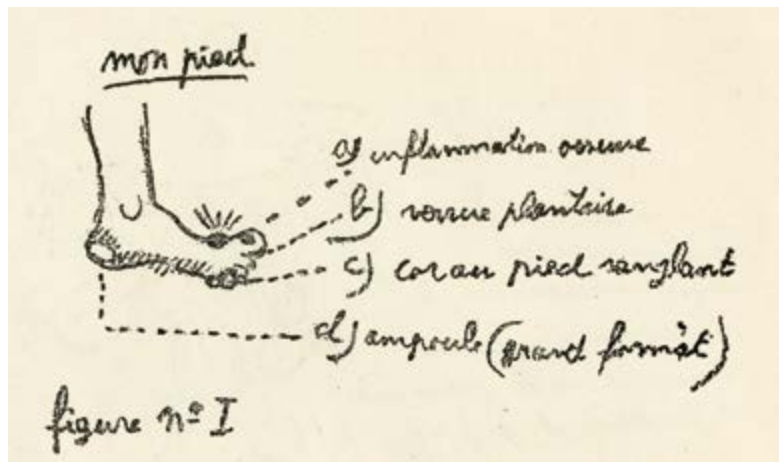 mon pied
a) inflammation osseuse
b) verrue plantaire
c) cor au pied sanglant
d) ampoule (grand formât)
figure nº I